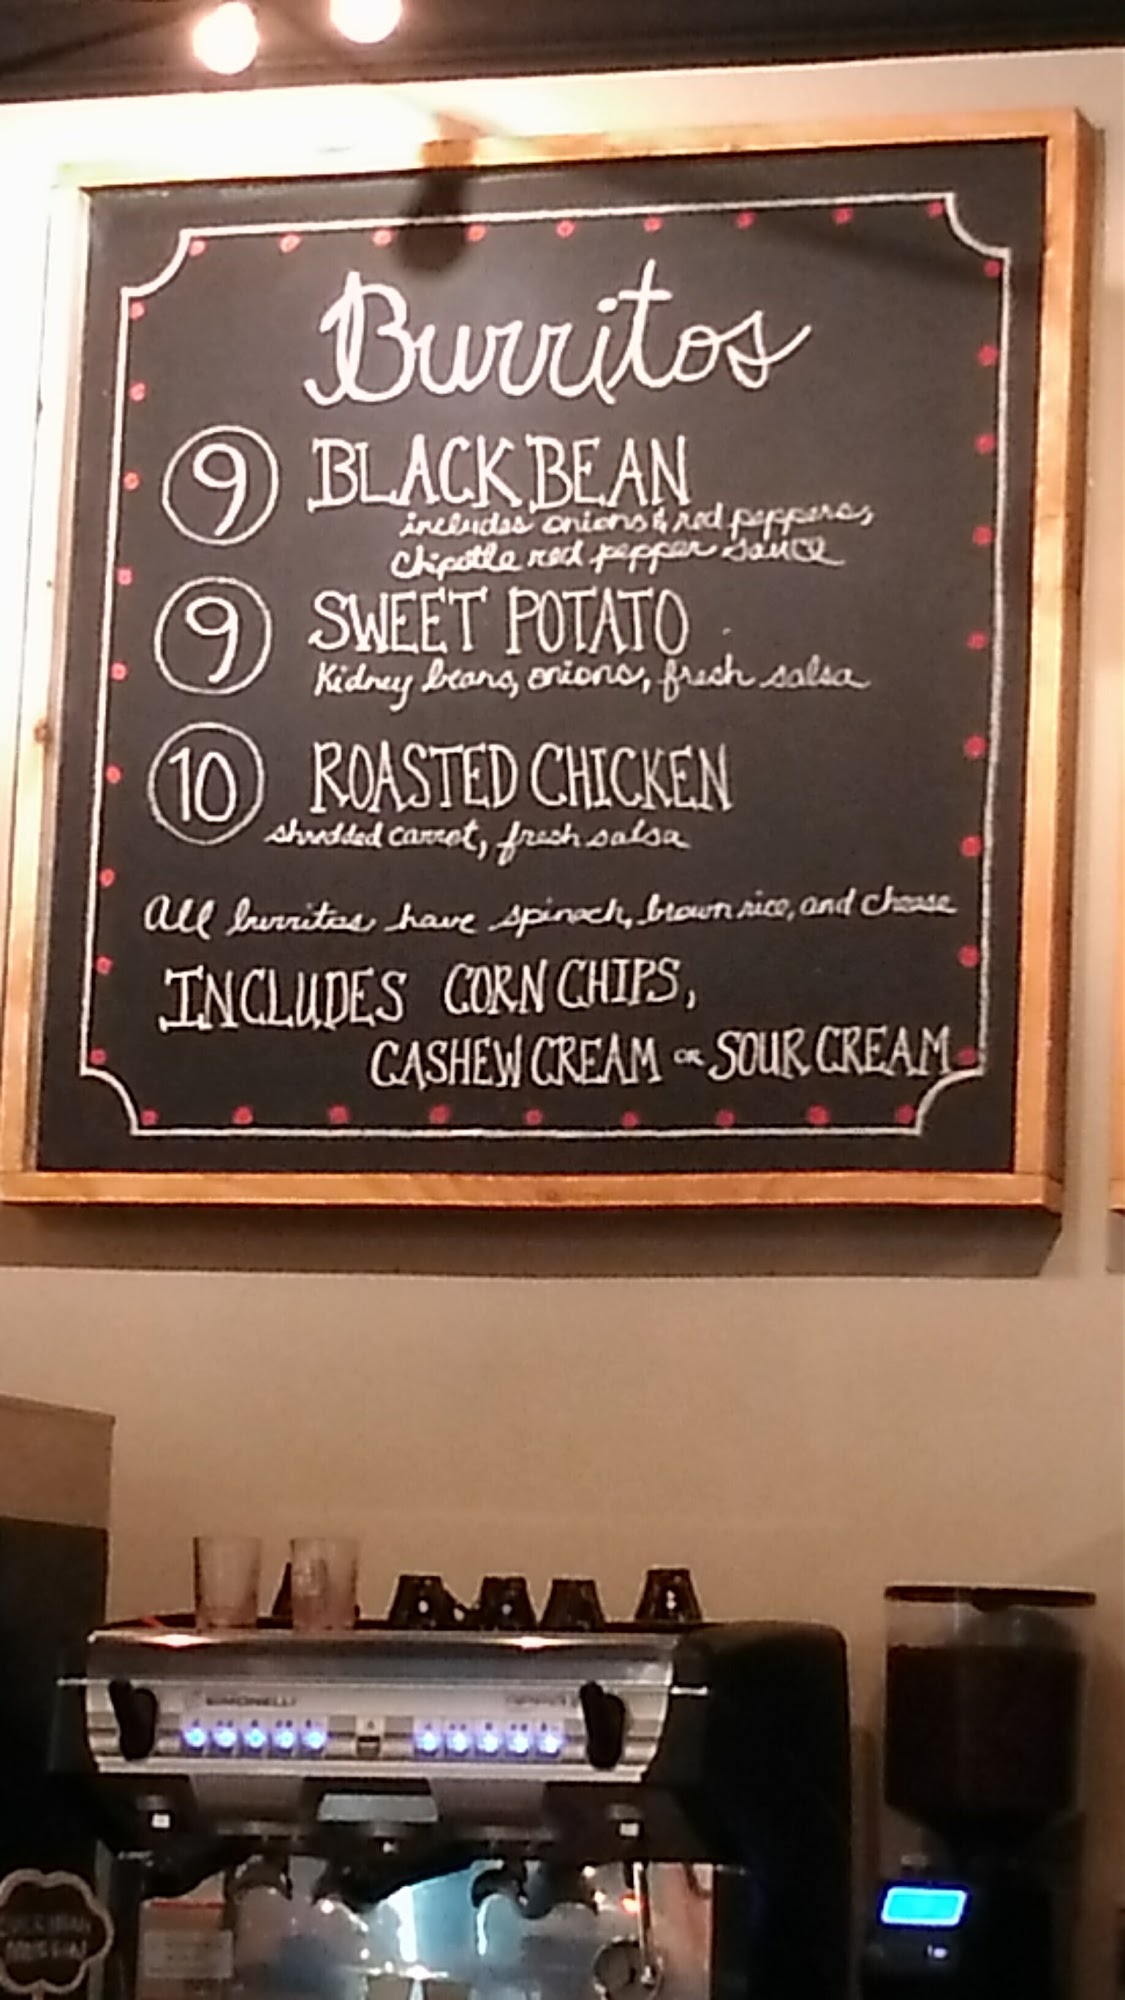 Burritos
9 BLACK BEAN
includes onions & red peppers,
chipotle red pepper sauce
9 SWEET POTATO
Kidney beans, onions, fresh salsa
10 ROASTED CHICKEN
shredded carrot, fresh salsa
All burritos have spinach, brown rice, and cheese
INCLUDES CORN CHIPS,
CASHEW CREAM OR SOUR CREAM
SIMONELLI